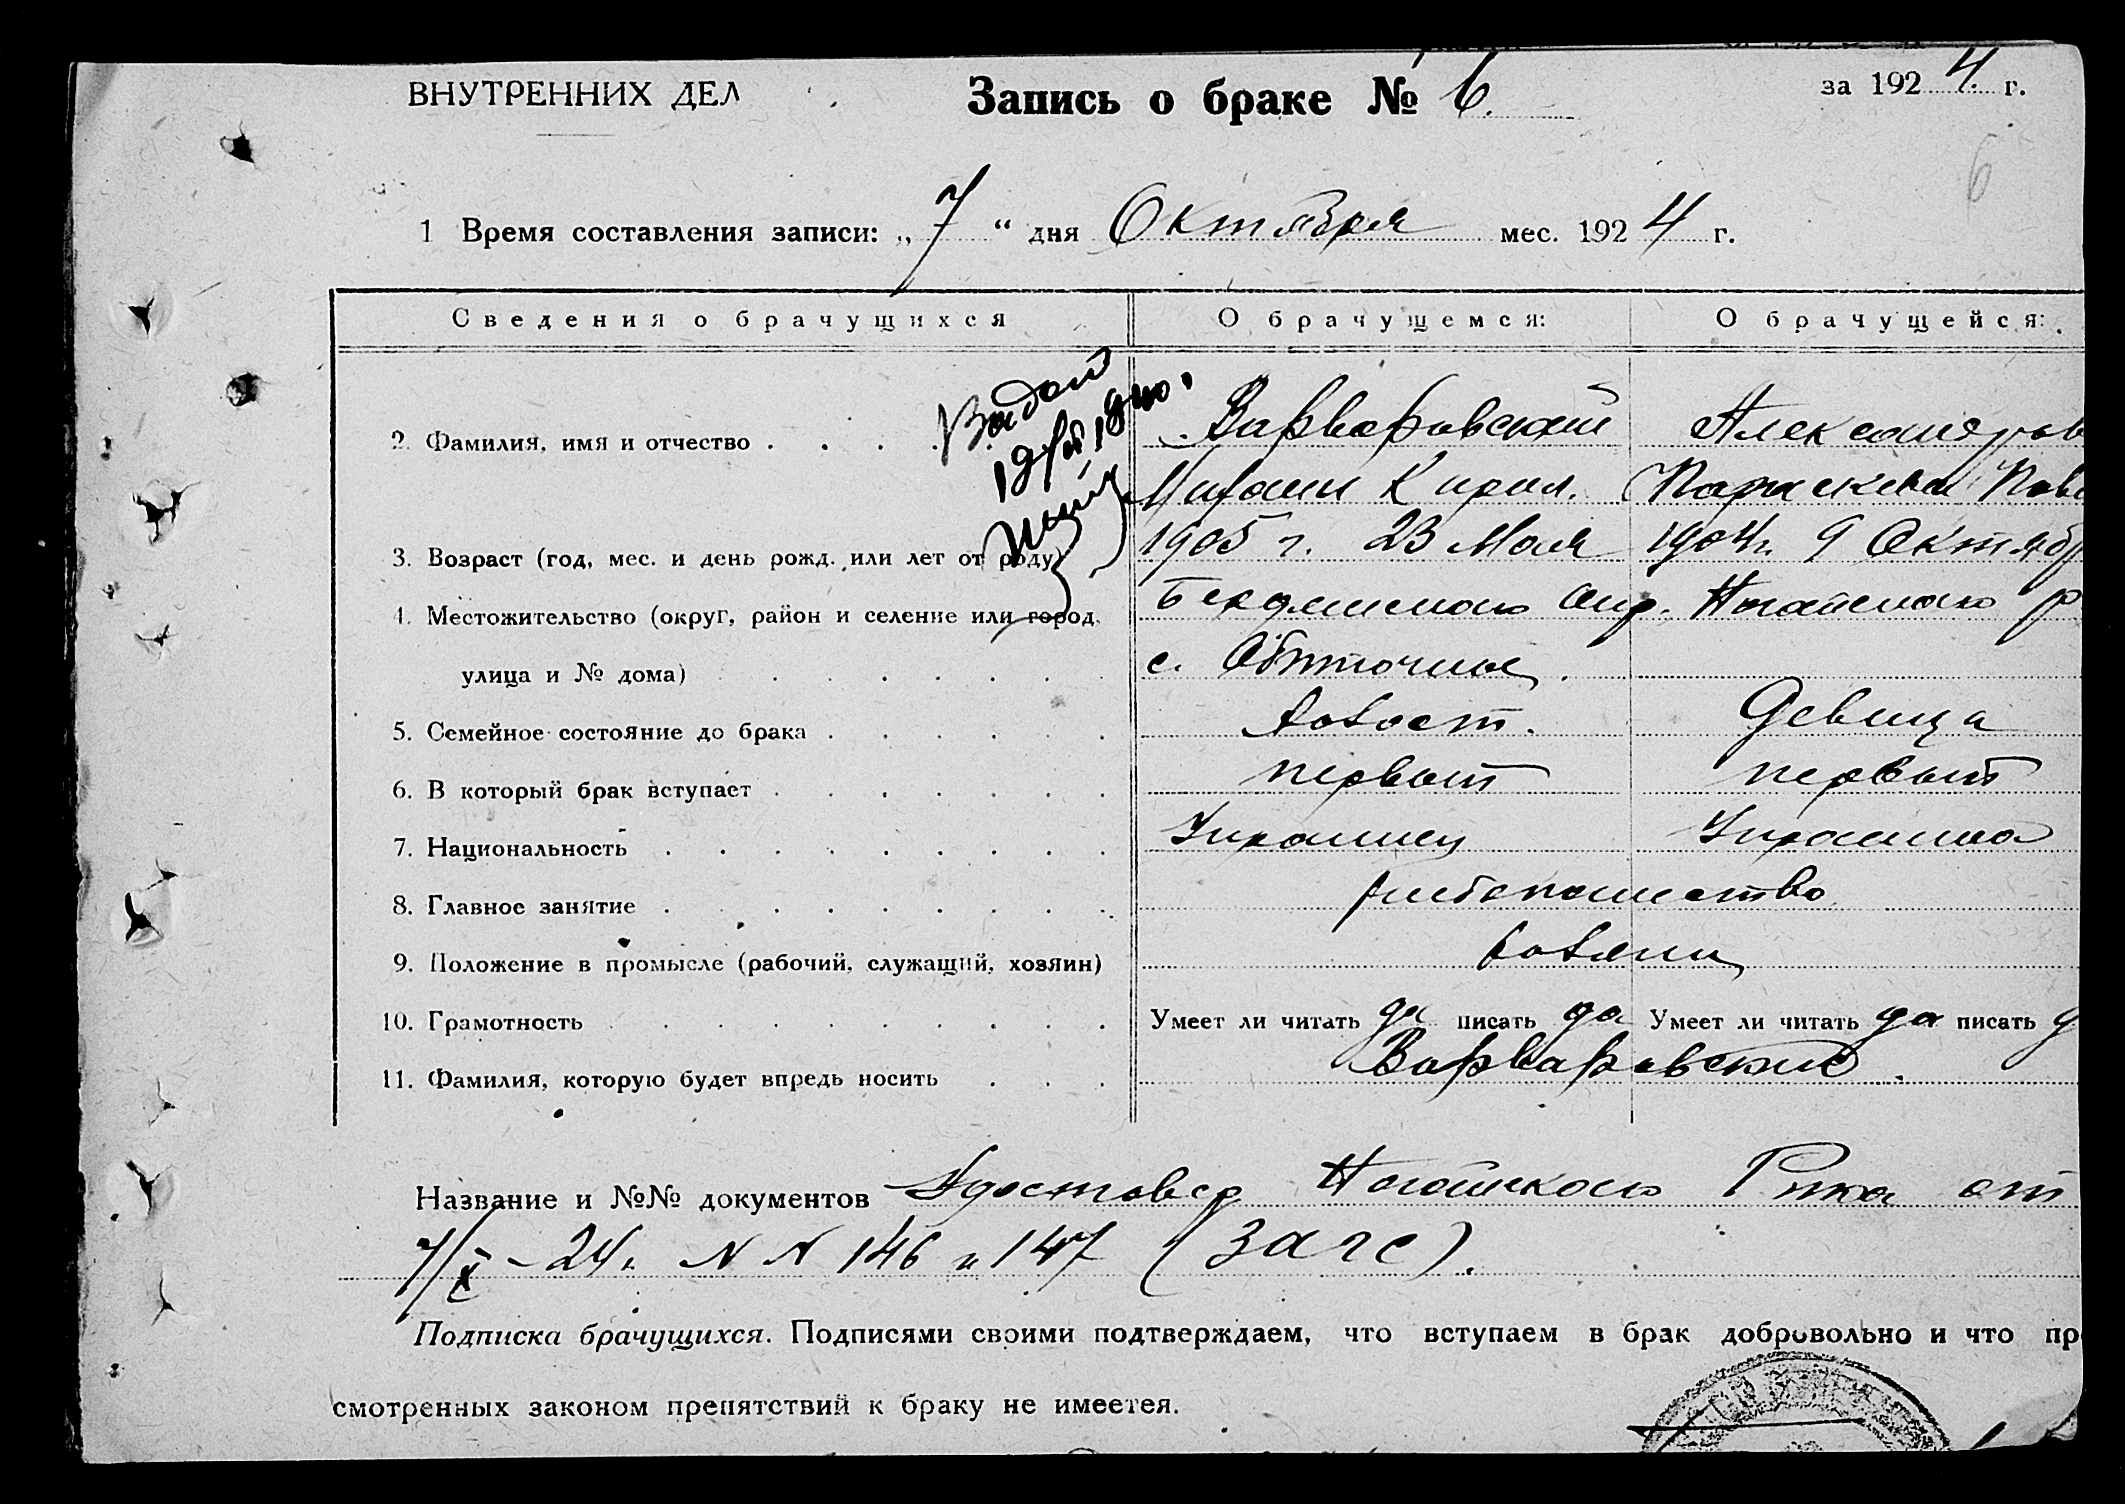 ВНУТРЕННИХ ДЕЛ
Запись о браке № 6.
за 1924 г.
6
1 Время составления записи: „7“ дня Октября мес. 1924 г.
Сведения о брачущихся О брачущемся: О брачущейся:
2. Фамилия, имя и отчество Варваровский Александров
Кирил. Параскева Пав
3. Возраст (год, мес. и день рожд. или лет от роду) 1905 г. 23 Мая 1904 г. 9 Октябр
4. Местожительство (округ, район и селение или город, Бердянского окр. Ногайского р
улица и № дома) с. Обиточное
5. Семейное состояние до брака холост. Девица
6. В который брак вступает первый первый
7. Национальность Украинец Украинка
8. Главное занятие хлебопашество
9. Положение в промысле (рабочий, служащий, хозяин) хозяин
10. Грамотность Умеет ли читать да писать да Умеет ли читать да писать д
11. Фамилия, которую будет впредь носить Варваровские.
Название и №№ документов Удостовер Ногайского Рика от
7/X – 24 г. N N 146 и 147 (Загс).
Подписка брачущихся. Подписями своими подтверждаем, что вступаем в брак добровольно и что пр
смотренных законом препятствий к браку не имеется.